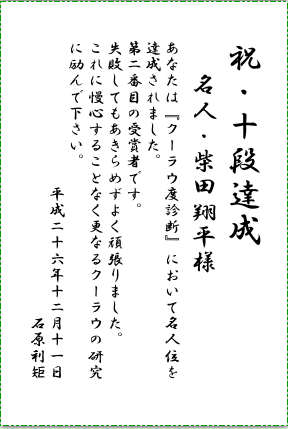 祝・十段達成
名人・柴田翔平様
あなたは『クーラウ度診断』において名人位を
達成されました。
第二番目の受賞者です。
失敗してもあきらめずよく頑張りました。
これに慢心することなく更なるクーラウの研究
に励んで下さい。
平成二十六年十二月十一日
石原利矩